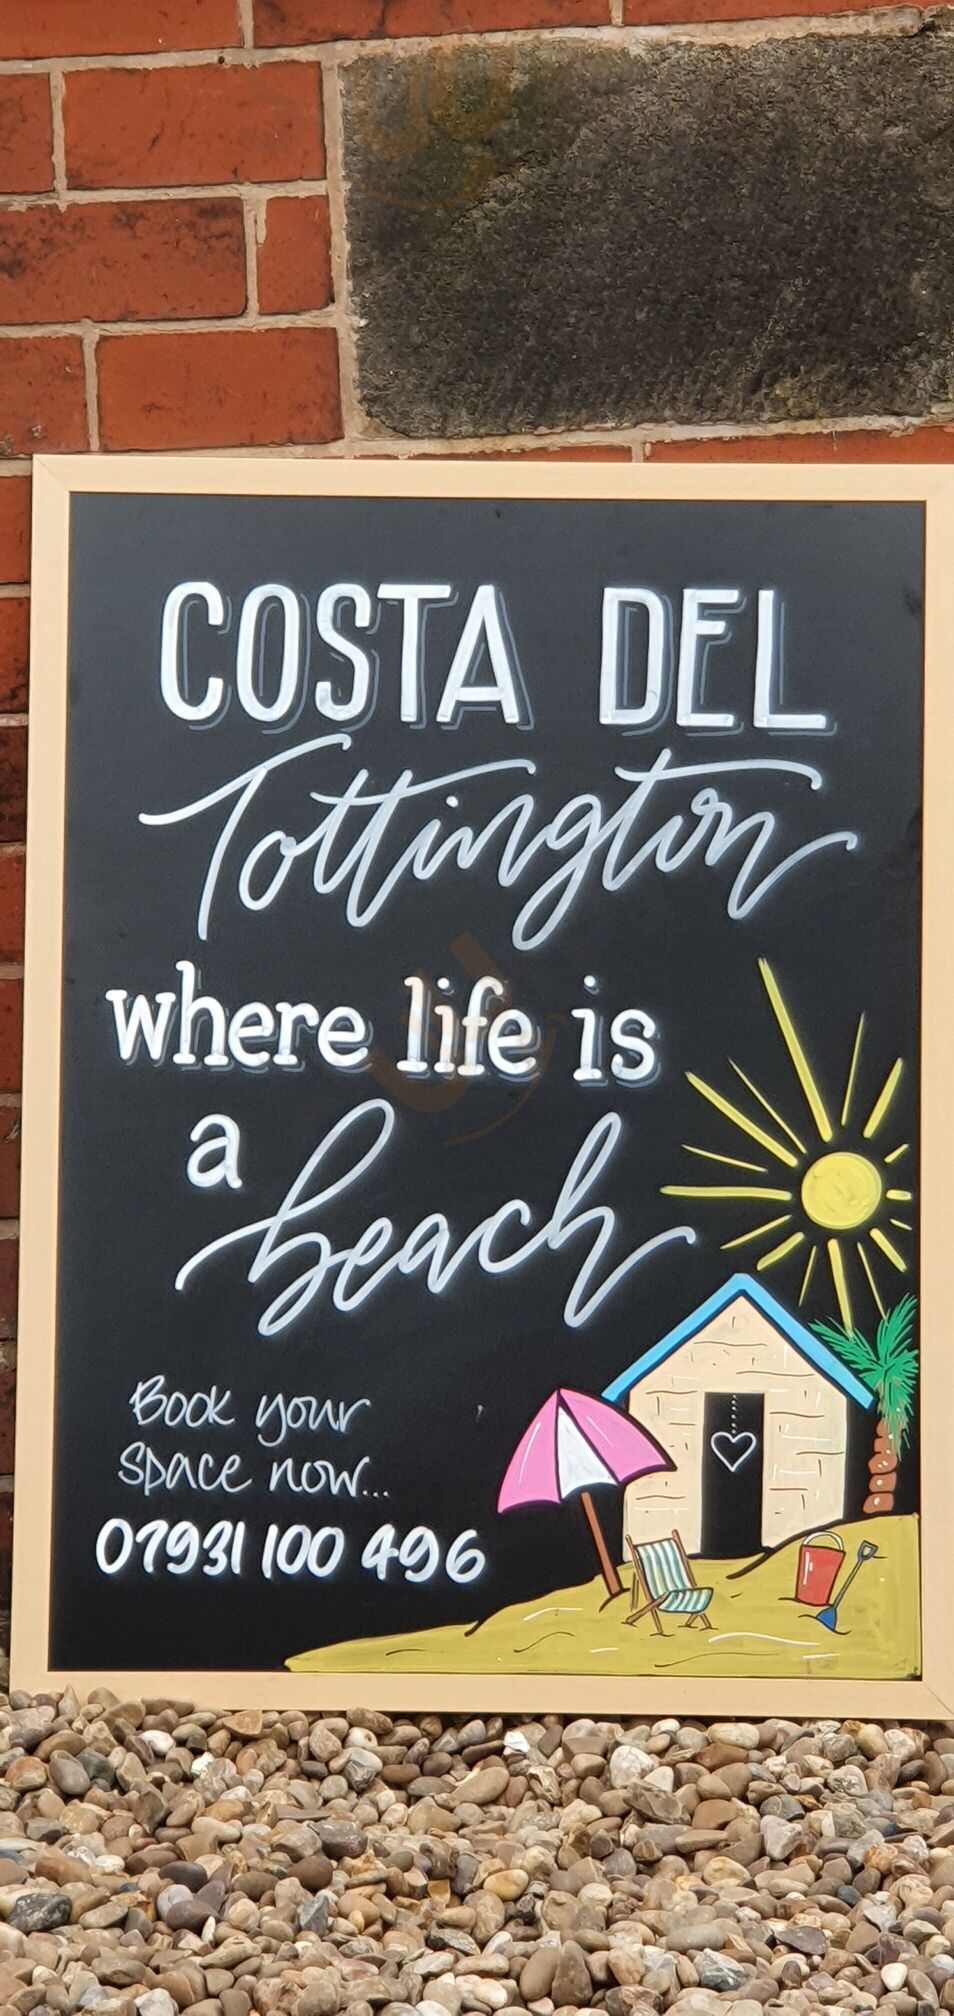 COSTA DEL
Tottington
where life is
a beach
Book your
space now...
07931 100 496